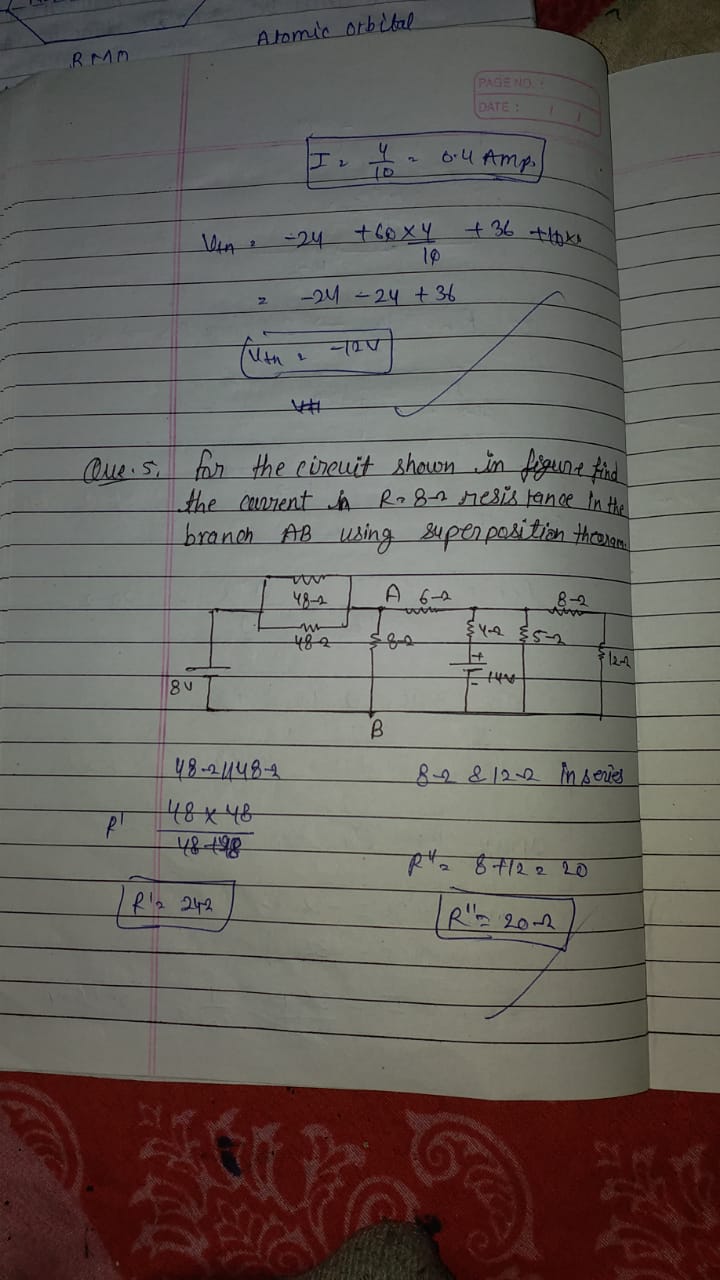 Atomic orbital
RMM
PAGE NO. :
DATE : / /
I = 4/10 = 0.4 Amp.
Vth = -24 + 60 × 4/10 + 36
= -24 - 24 + 36
Vth = -12V
Que. 5. for the circuit shown in figure find
the current in R=8Ω resistance in the
branch AB using superposition theoram.
48Ω A 6Ω 8Ω
48Ω 8Ω 4Ω 5Ω 12Ω
8V + - 14V
B
48Ω||48Ω 8Ω & 12Ω in series
R' 48 × 48
48+48
R" = 8+12 = 20
R' = 24Ω R" = 20Ω